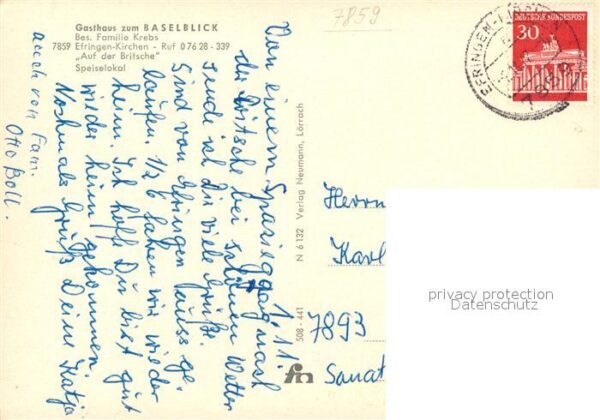 Gasthaus zum BASELBLICK
Bes. Familie Krebs
7859 Efringen-Kirchen - Ruf 0 76 28 - 339
„Auf der Britsche"
Speiselokal
7859
DEUTSCHE BUNDESPOST
30
EFRINGEN-KIRCH
7859
1.11.
Von einem Spaziergang nach
der Britsche bei schönem Wetter
sende ich Dir viele Grüße.
Sind von Efringen aus ge-
laufen. 1/2 6 fahren wir wieder
heim. Ich hoffe Du bist gut
wieder heim gekommen.
Nochmals Grüß Deine Katja
auch von Fam.
Otto Boll.
N 6132 Verlag Neumann, Lörrach
508-441
fn
Herrn
Karl
7893
Sanat
privacy protection
Datenschutz